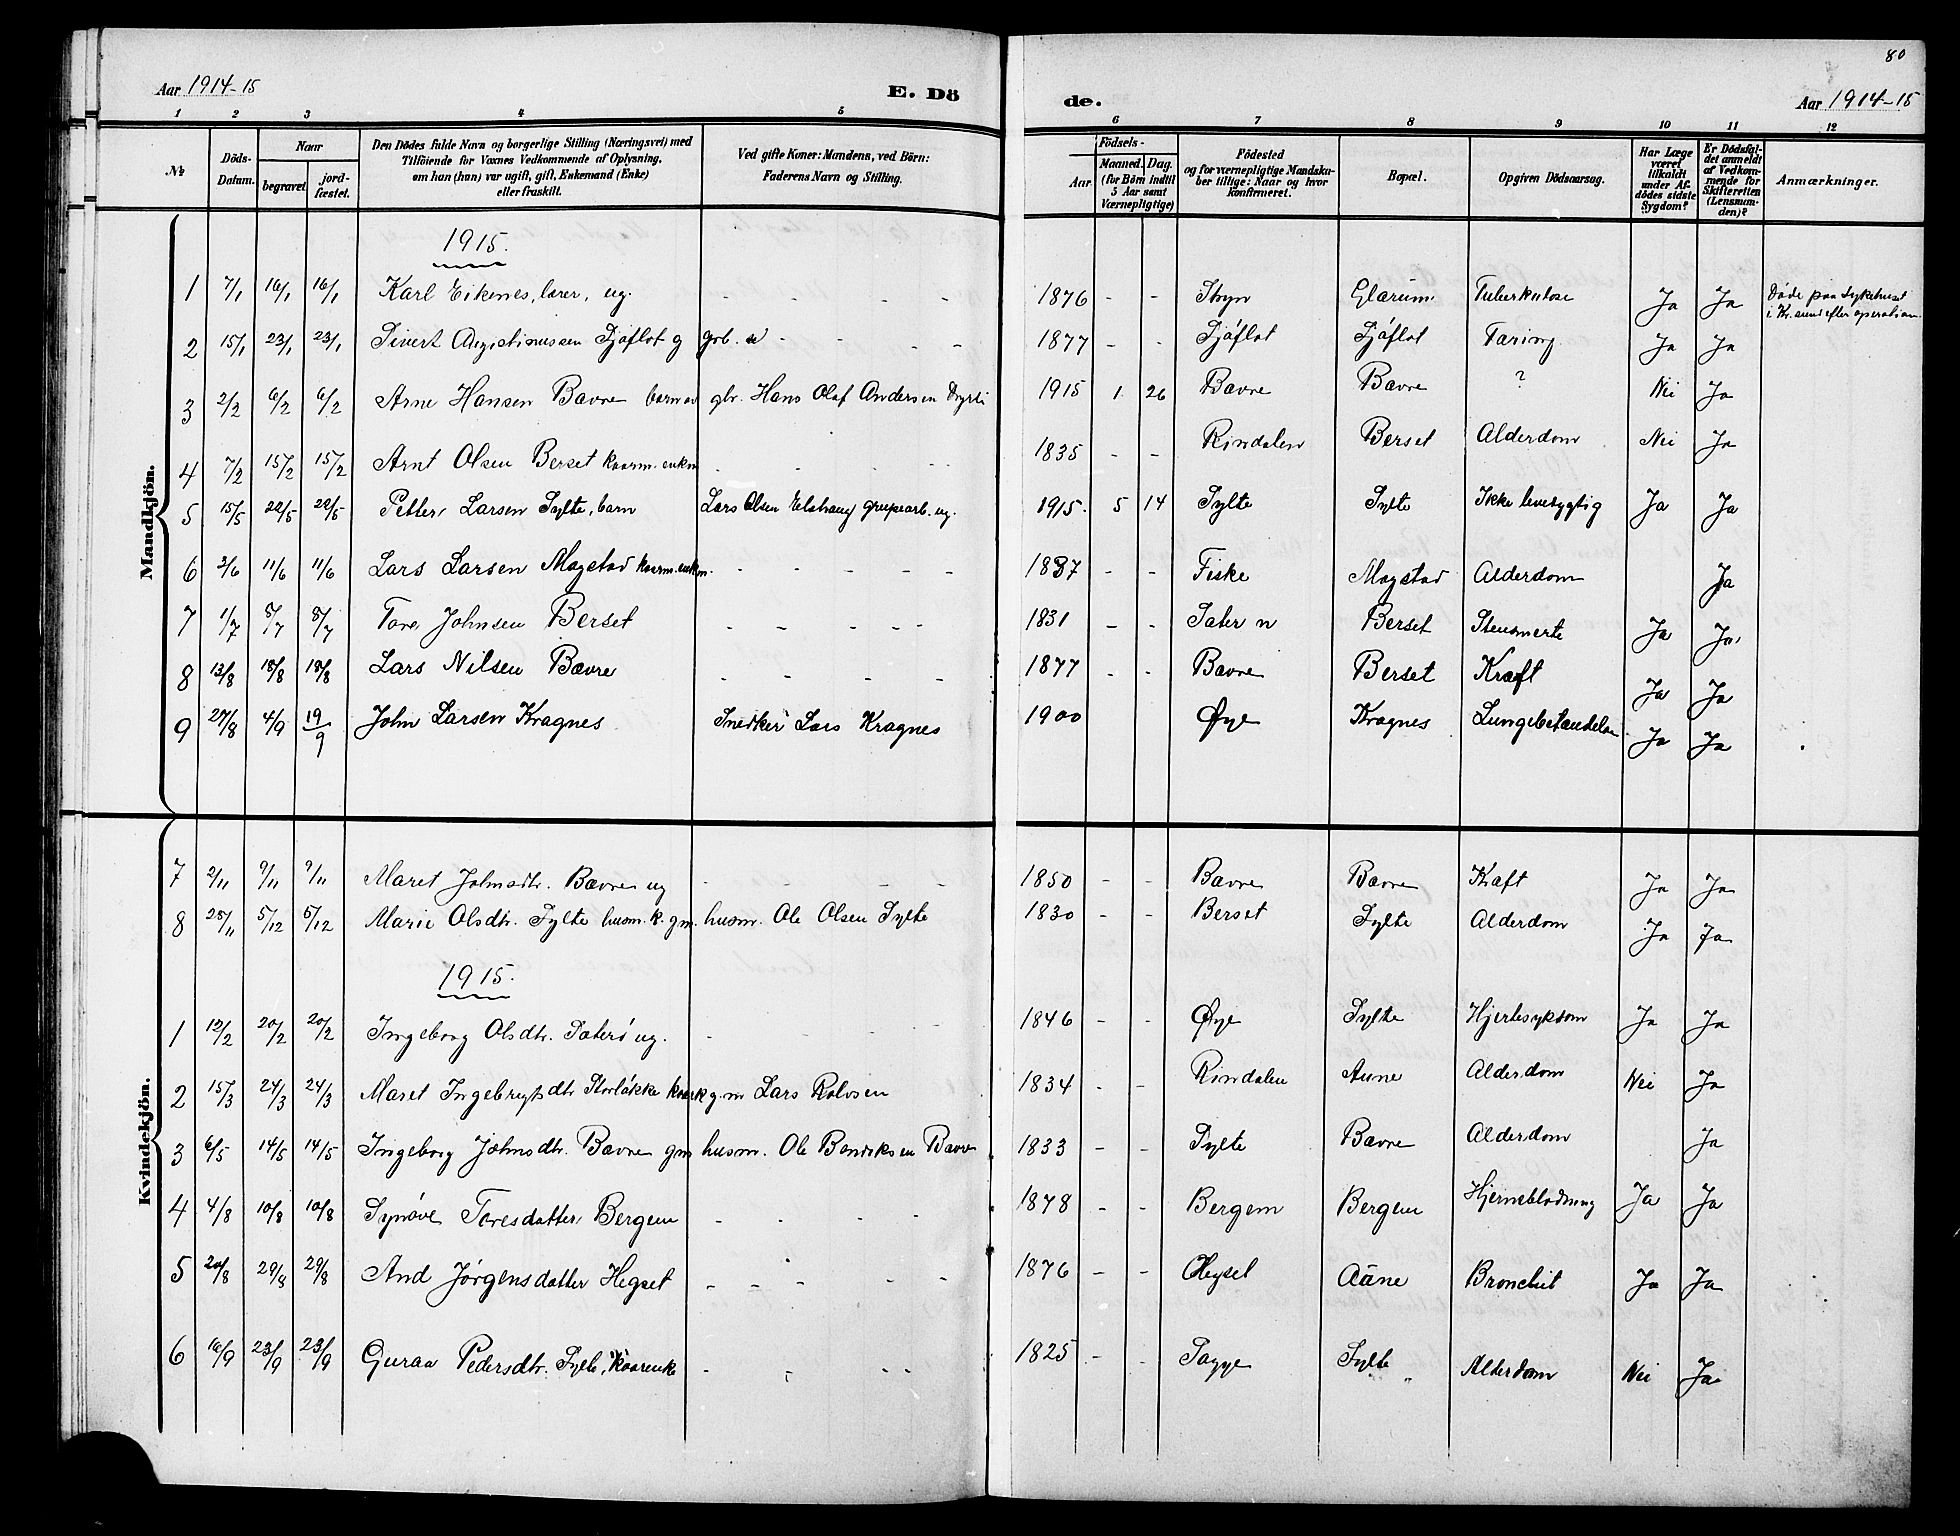 80
Aar 1914-15 E. Dö de. Aar 1914-15
1 2 3 4 5 6 7 8 9 10 11 12
№
Döds-Datum.
Naar
begravet.
jordfæstet.
Den Dödes fulde Navn og borgerlige Stilling (Næringsvei) med
Tilföiende for Voxnes Vedkommende af Oplysning,
om han (hun) var ugift, gift, Enkemand (Enke)
eller fraskilt.
Ved gifte Koner: Mandens, ved Börn:
Faderens Navn og Stilling.
Födsels-
Aar
Maaned. Dag.
(for Börn indtil
5 Aar samt
Værnepligtige)
Födested
og for værnepligtige Mandskaber tillige: Naar og hvor
konfirmeret.
Bopæl.
Opgiven Dödsaarsag.
Har Læge
været
tilkaldt
under Afdödes sidste
Sygdom?
Er Dödsfaldet anmeldt
af Vedkommende for
Skifteretten
(Lensmanden)?
Anmærkninger.
Mandkjön.
1915.
1 7/1 16/1 16/1 Karl Eikenes, lærer, ug. - - - - 1876 - - Stryn Glærum Tuberkulose Ja Ja Døde paa Sykehuset
i Kr.sund efter operation.
2 15/1 23/1 23/1 Sivert Augustinussen Sjøflot g grb. - - - - 1877 - - Sjøflot Sjøflot Tæring Ja Ja
3 2/2 6/2 6/2 Arne Hansen Bævre barn av gbr. Hans Olaf Andersen 1915 1 26 Bævre Bævre ? Nei Ja
4 7/2 15/2 15/2 Arnt Olsen Berset kaarm. enkm - - - - 1835 - - Rindalen Berset Alderdom Nei Ja
5 15/5 22/5 22/5 Petter Larsen Sylte, barn Lars Olsen grupearb. ug. 1915. 5 14 Sylte Sylte Ikke levedygtig Ja Ja
6 2/6 11/6 11/6 Lars Larsen Mogstad kaarm. enkm. - - - - 1837 - - Fiske Mogstad Alderdom Ja
7 1/7 8/7 8/7 Tore Johnsen Berset - - - - 1831 - - Sæter n Berset Stensmerte Ja Ja
8 13/8 18/8 18/8 Lars Nilsen Bævre - - - - 1877 - - Bævre Berset Kræft Ja Ja
9 27/8 4/9 19/9 John Larsen Kragnes Snedker Lars Kragnes 1900 Øye Kragnes Lungebetændelse Ja Ja
Kvindekjön.
7 2/11 9/11 9/11 Maret Johnsdtr. Bævre ug - - - - 1850 - - Bævre Bævre Kræft Ja Ja
8 28/11 5/12 5/12 Marie Olsdtr. Sylte husm. k. gm. husm. Ole Olsen Sylte 1830 - - Berset Sylte Alderdom Ja Ja
1915.
1 12/2 20/2 20/2 Ingeborg Olsdtr. Sæterø ug. - - - - 1846 - - Øye Sylte Hjertesykdom Ja Ja
2 15/3 24/3 24/3 Maret Ingebrigtsdtr Storløkke kaark g.m Lars Rolvsen 1834 - - Rindalen Aune Alderdom Nei Ja
3 6/5 14/5 14/5 Ingeborg Johnsdtr. Bævre gm husm. Ole Bendiksen Bævre 1833 - - Sylte Bævre Alderdom Ja
4 4/8 10/8 10/8 Synøve Toresdatter Bergem - - - - 1878 - - Bergem Bergem Hjerneblødning Ja Ja
5 20/8 29/8 29/8 And Jørgensdatter Hegset - - - - 1876 - - Hegset Aane Bronchit Ja Ja
6 16/9 23/9 23/9 Guraa Pedersdtr. Sylte, kaarenke - - - - 1825 - - Sogge Sylte Alderdom Nei Ja